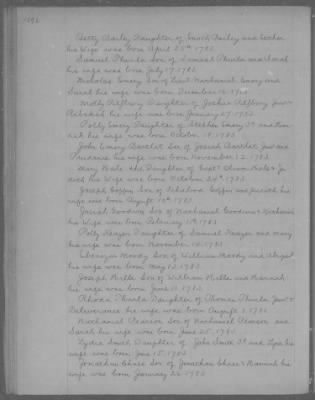 Betty Bailey Daughter of Enoch Bailey and Esther
his Wife was born April 25th 1783
Samuel Thurla Son of Samuel Thurla and Sarah
his wife was born July 17 1783
Nicholas Emery Son of Lieut Nathaniel Emery and
Sarah his wife was born December 12 1783
Molly Daughter of Joshua Junr &
Rebekah his wife was born January 27 1783
Polly Emery Daughter of Stephen Emery 3d and
his wife was born October 18 1783
John Emery Bartlet Son of Josiah Bartlet Junr and
Prudence his wife was born November 12 1783
Mary Hale the Daughter of Oliver Hale &
his Wife was born October 30th 1783
Joseph Coffin Son of Coffin and Judith his
wife was born August 10th 1783
Josiah Goodwin Son of Nathaniel Goodwin &
his Wife was born February 1783
Polly Daughter of Samuel and Mary
his wife was born November 10 1783
Ebenezer Moody Son of William Moody and Abigail
his wife was born May 13 1783
Joseph Mille Son of William Mille and Hannah
his wife was born June 11 1783
Rhoda Thurla Daughter of Thomas Thurla Junr &
Deliverance his wife was born August 3 1783
Nathaniel Pearson Son of Nathaniel Pearson and
Sarah his wife was born June 25 1783
Lydia Smith Daughter of John Smith 3d and Lyda his
wife was born June 15 1783
Jonathan Chase Son of Jonathan Chase & Hannah his
wife was born January 22 1783